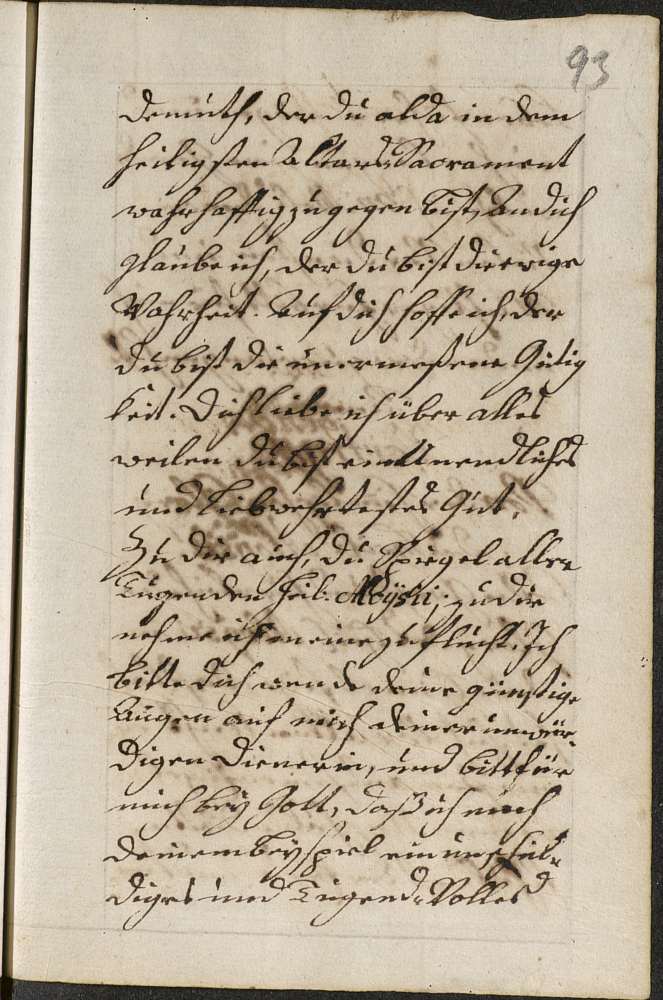 93
demuth, der du alda in dem
heiligsten Altars Sacrament
wahrhafftig zugegen bist, An dich
glaube ich, der du bist die ewige
Wahrheit. Auf dich hoffe ich, der
du bist die unermeßene Gütig
keit. Dich liebe ich über alles
weilen du bist ein Unendliches
und Liebwehrtestes Gut.
Zu dir auch, du Spiegel aller
Tugenden heil: Aloysi; zu dir
nehme ich meine zuflucht. Ich
bitte dich wende deine günstige
Augen auf mich deiner unwür„
digen Dienerin, und bitt für
mich bey Gott, daß ich nach
deinem beyspiel ein unschul„
diges und Tugend„Volles